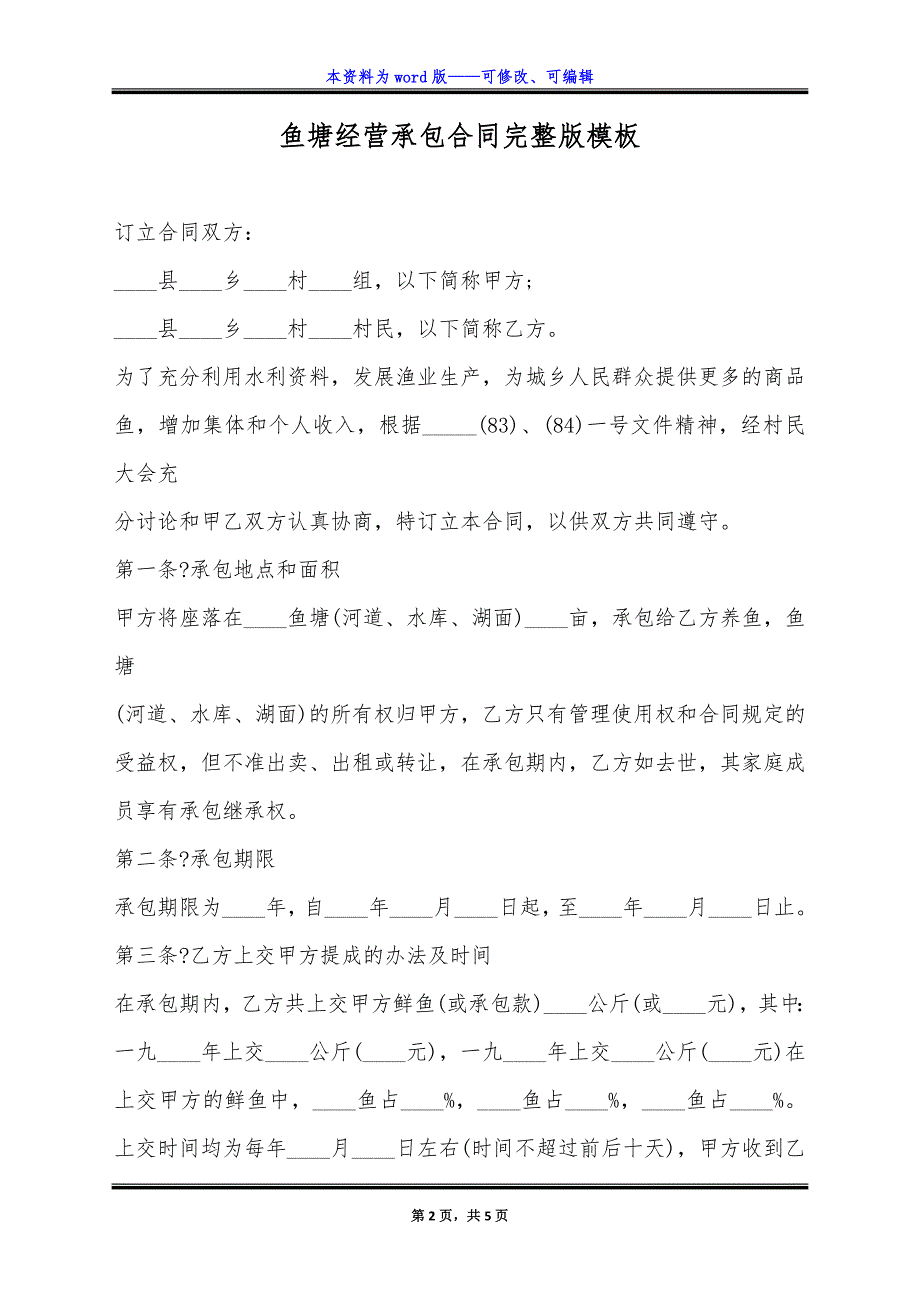 本资料为 word 版——可修改、可编辑
鱼塘经营承包合同完整版模板
订立合同双方：
____县____乡____村____组，以下简称甲方;
____县____乡____村____村民，以下简称乙方。
为了充分利用水利资料，发展渔业生产，为城乡人民群众提供更多的商品
鱼，增加集体和个人收入，根据_____(83)、(84)一号文件精神，经村民
大会充
分讨论和甲乙双方认真协商，特订立本合同，以供双方共同遵守。
第一条?承包地点和面积
甲方将座落在____鱼塘(河道、水库、湖面)____亩，承包给乙方养鱼，鱼
塘
(河道、水库、湖面)的所有权归甲方，乙方只有管理使用权和合同规定的
受益权，但不准出卖、出租或转让，在承包期内，乙方如去世，其家庭成
员享有承包继承权。
第二条?承包期限
承包期限为____年，自____年____月____日起，至____年____月____日止。
第三条?乙方上交甲方提成的办法及时间
在承包期内，乙方共上交甲方鲜鱼(或承包款)____公斤(或____元)，其中：
一九____年上交____公斤(____元)，一九____年上交____公斤(____元)在
上交甲方的鲜鱼中，____鱼占____%，____鱼占____%，____鱼占____%。
上交时间均为每年____月____日左右(时间不超过前后十天)，甲方收到乙
第 2 页，共 5 页